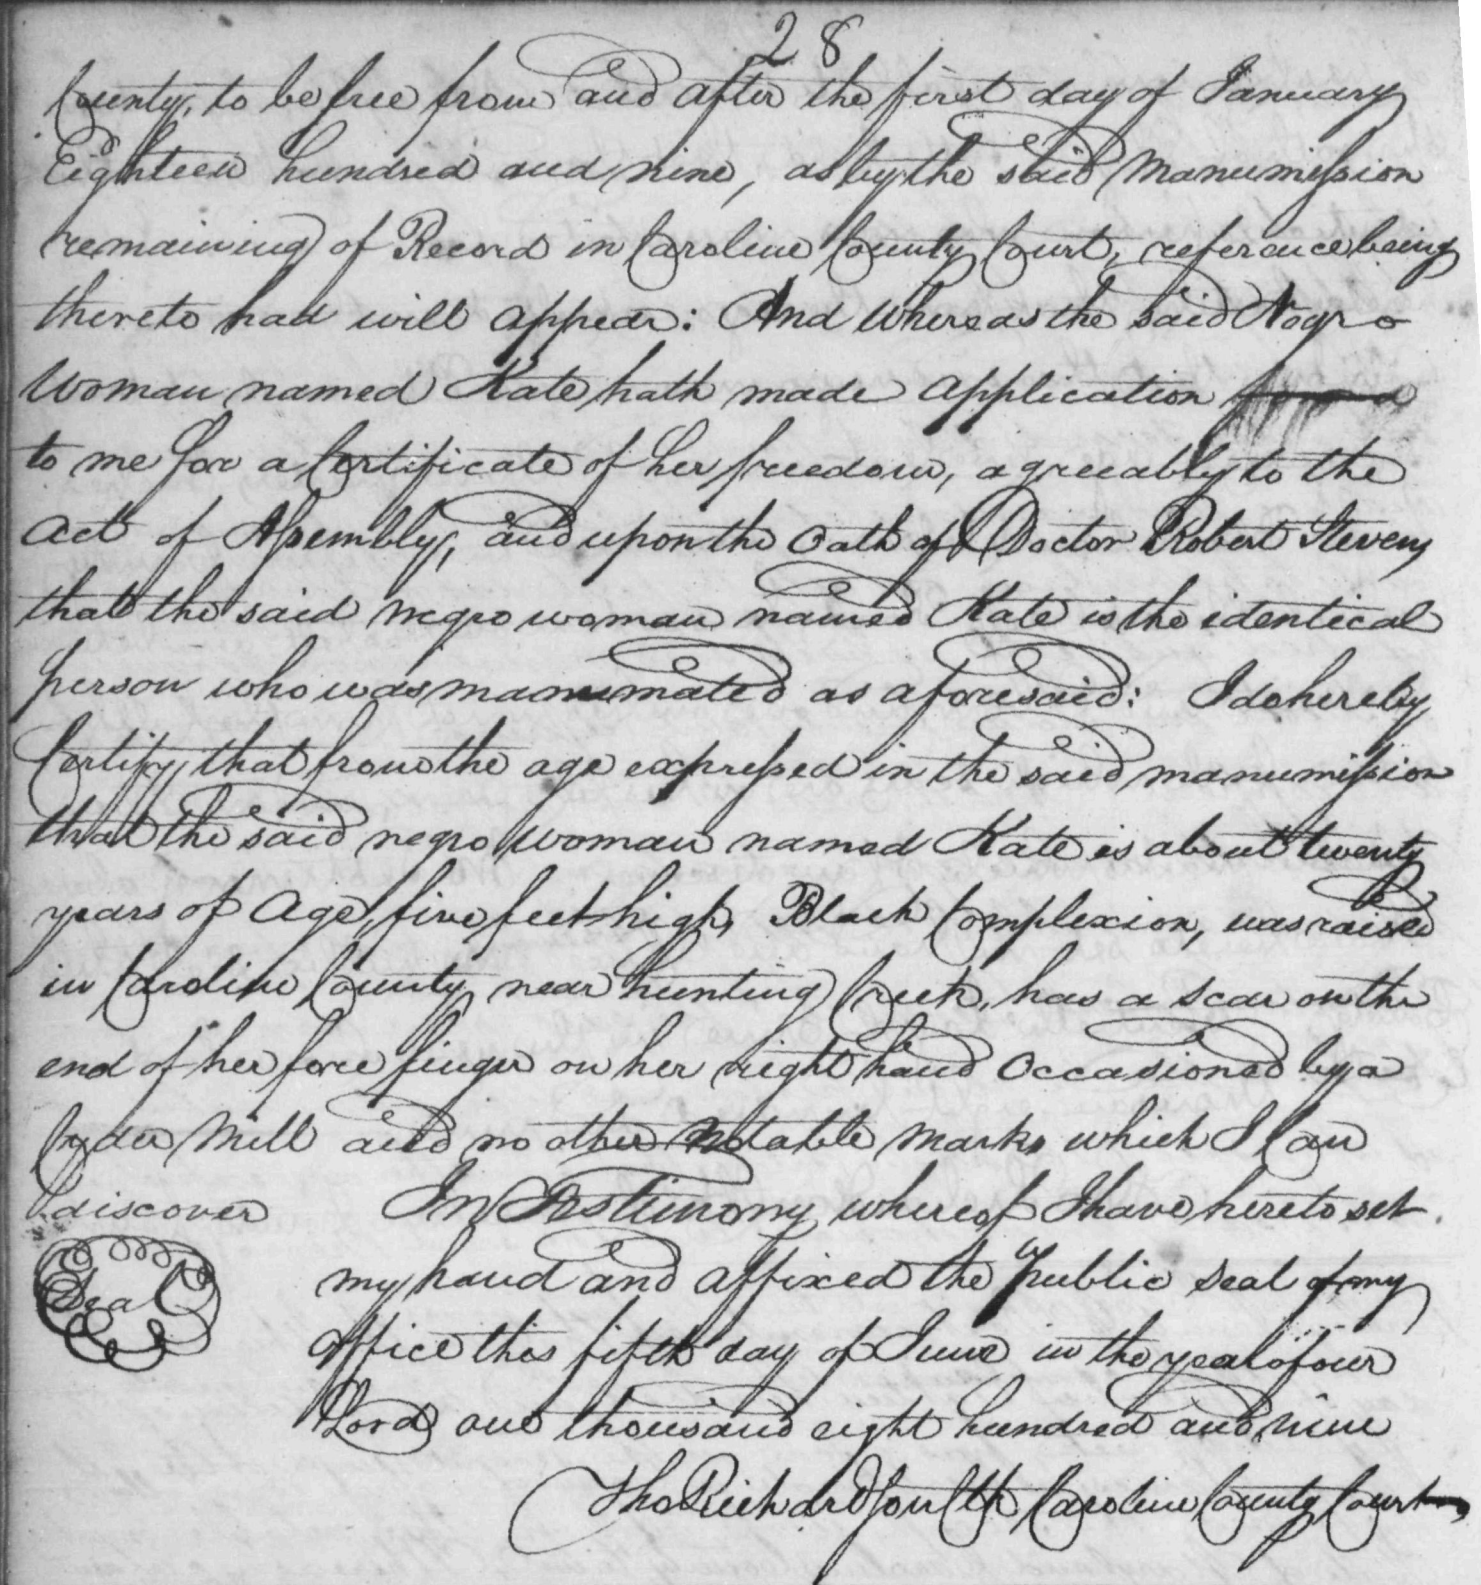 28
County, to be free from and after the first day of January
Eighteen hundred and nine, as by the said Manumission
remaining of Record in Caroline County Court, reference being
thereto had will appear: And Whereas the said Negro
Woman named Kate hath made application
to me for a Certificate of her freedom, agreeably to the
Act of Assembly, and upon the Oath of Doctor Robert Stevens
that the said negro woman named Kate is the identical
person who was manumated as aforesaid: I do hereby
Certify that from the age expressed in the said manumission
that the said negro woman named Kate is about twenty
years of Age, five feet high, Black Complexion, was raised
in Caroline County near hunting Creek, has a scar on the
end of her fore finger on her right hand Occasioned by a
Cyder Mill and no other notable marks which I Can
discover In Testimony whereof I have hereto set
Seal my hand and affixed the Public seal of my
office this fifth day of June in the year of our
Lord one thousand eight hundred and nine
Tho Richardson Clk Caroline County Court